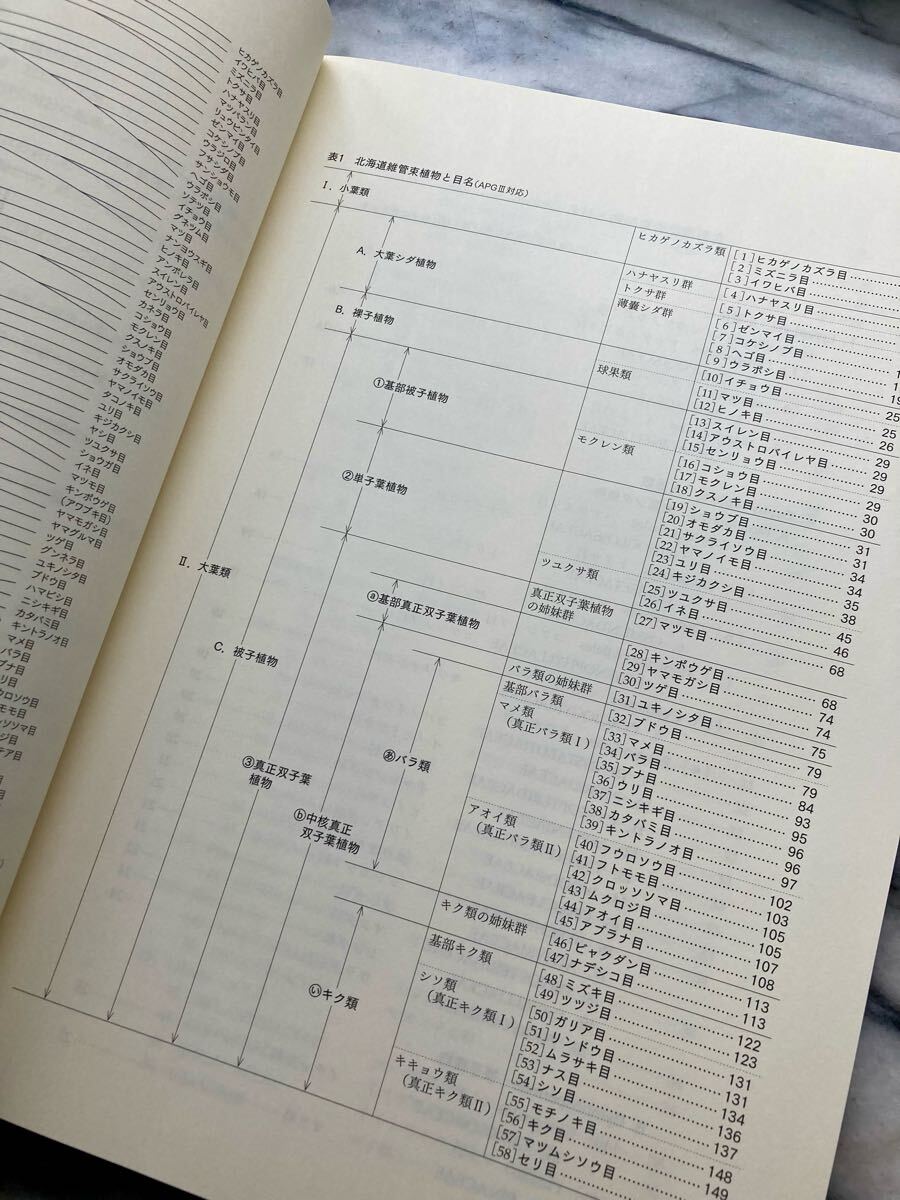 ヒカゲノカズラ目
イワヒバ目
ミズニラ目
トクサ目
ハナヤスリ目
マツバラン目
リュウビンタイ目
ゼンマイ目
コケシノブ目
ウラジロ目
フサシダ目
サンショウモ目
ヘゴ目
ウラボシ目
ソテツ目
イチョウ目
グネツム目
マツ目
ナンヨウスギ目
ヒノキ目
アンボレラ目
スイレン目
アウストロバイレヤ目
センリョウ目
カネラ目
コショウ目
モクレン目
クスノキ目
ショウブ目
オモダカ目
サクライソウ目
ヤマノイモ目
タコノキ目
ユリ目
キジカクシ目
ヤシ目
ツユクサ目
ショウガ目
イネ目
マツモ目
キンポウゲ目
(アワブキ目)
ヤマモガシ目
ヤマグルマ目
ツゲ目
グンネラ目
ユキノシタ目
ブドウ目
ハマビシ目
ニシキギ目
カタバミ目
キントラノオ目
マメ目
バラ目
ブナ目
リ目
ウロソウ目
モモ目
ッソソマ目
ジ目
テア目
目
目
表1 北海道維管束植物と目名(APGⅢ対応)
Ⅰ. 小葉類
ヒカゲノカズラ類
[1]ヒカゲノカズラ目
[2]ミズニラ目
[3]イワヒバ目
Ⅱ. 大葉類
A. 大葉シダ植物
ハナヤスリ群
[4]ハナヤスリ目
トクサ群
[5]トクサ目
薄嚢シダ群
[6]ゼンマイ目
[7]コケシノブ目
[8]ヘゴ目
[9]ウラボシ目
B. 裸子植物
[10]イチョウ目
球果類
[11]マツ目 25
[12]ヒノキ目 25
C. 被子植物
①基部被子植物
[13]スイレン目 26
[14]アウストロバイレヤ目
[15]センリョウ目 29
モクレン類
[16]コショウ目 29
[17]モクレン目 29
[18]クスノキ目 30
②単子葉植物
[19]ショウブ目 30
[20]オモダカ目 31
[21]サクライソウ目 31
[22]ヤマノイモ目 34
[23]ユリ目 34
[24]キジカクシ目 35
ツユクサ類
[25]ツユクサ目 38
[26]イネ目 45
真正双子葉植物の姉妹群
[27]マツモ目 46
68
③真正双子葉植物
ⓐ基部真正双子葉植物
[28]キンポウゲ目 68
[29]ヤマモガシ目 74
[30]ツゲ目 74
ⓑ中核真正双子葉植物
バラ類の姉妹群
[31]ユキノシタ目 75
あバラ類
基部バラ類
[32]ブドウ目 79
マメ類
(真正バラ類Ⅰ)
[33]マメ目 79
[34]バラ目 84
[35]ブナ目 93
[36]ウリ目 95
[37]ニシキギ目 96
[38]カタバミ目 96
[39]キントラノオ目 97
アオイ類
(真正バラ類Ⅱ)
[40]フウロソウ目 102
[41]フトモモ目 103
[42]クロッソソマ目 105
[43]ムクロジ目 105
[44]アオイ目 107
[45]アブラナ目 108
キク類の姉妹群
[46]ビャクダン目 113
[47]ナデシコ目 113
いキク類
基部キク類
[48]ミズキ目 122
[49]ツツジ目 123
シソ類
(真正キク類Ⅰ)
[50]ガリア目 131
[51]リンドウ目 131
[52]ムラサキ目 134
[53]ナス目 136
[54]シソ目 137
キキョウ類
(真正キク類Ⅱ)
[55]モチノキ目 148
[56]キク目 149
[57]マツムシソウ目
[58]セリ目